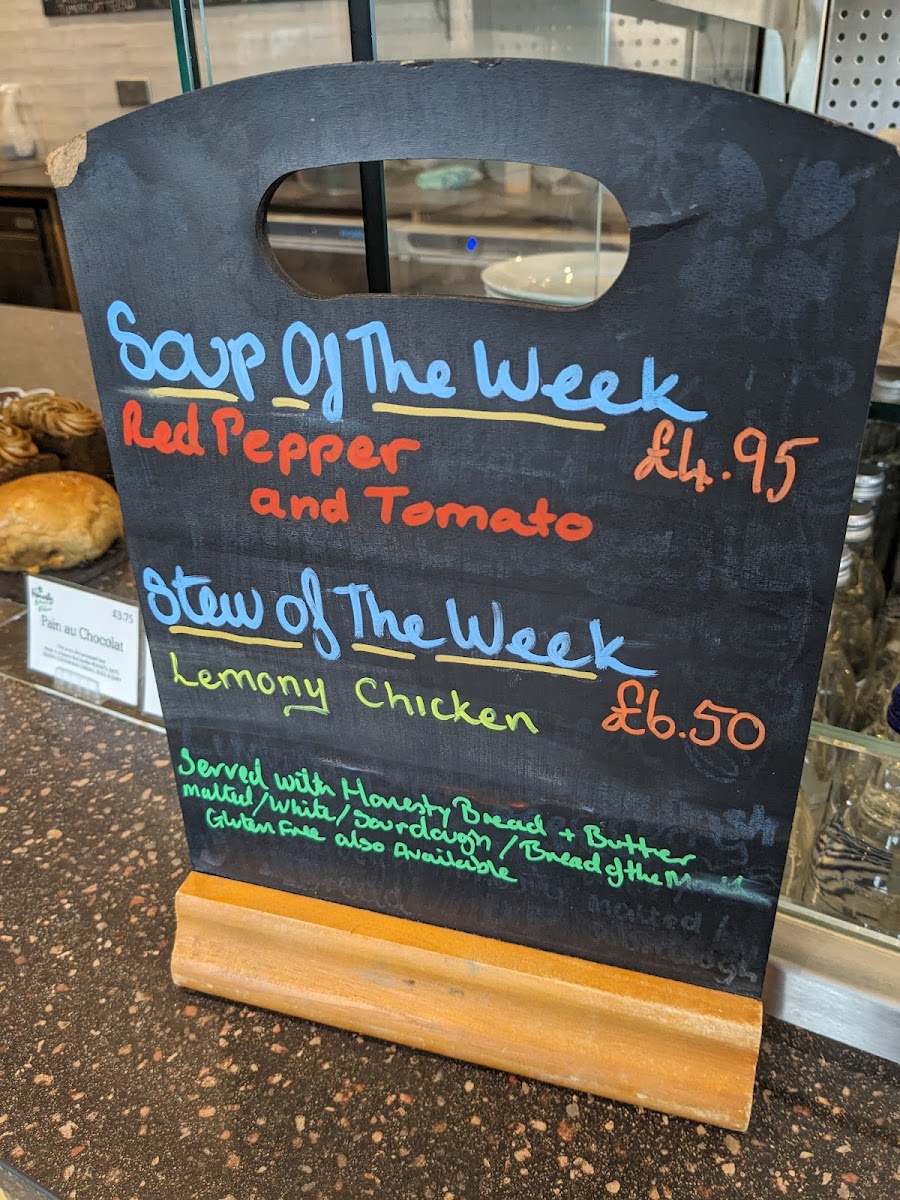 Soup Of The Week
Red Pepper
£4.95
and Tomato
Stew of The Week
Lemony Chicken
£6.50
Served with Honesty Bread + Butter
Malted/White/Sourdough/Bread of the
Gluten Free also Available
£3.75
Pain au Chocolat